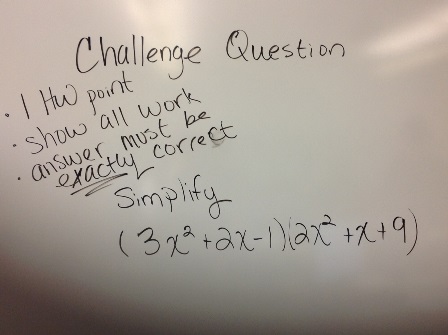 Challenge Question
· 1 HW point
· show all work
· answer must be
exactly correct
Simplify
(3x²+2x-1)(2x²+x+9)